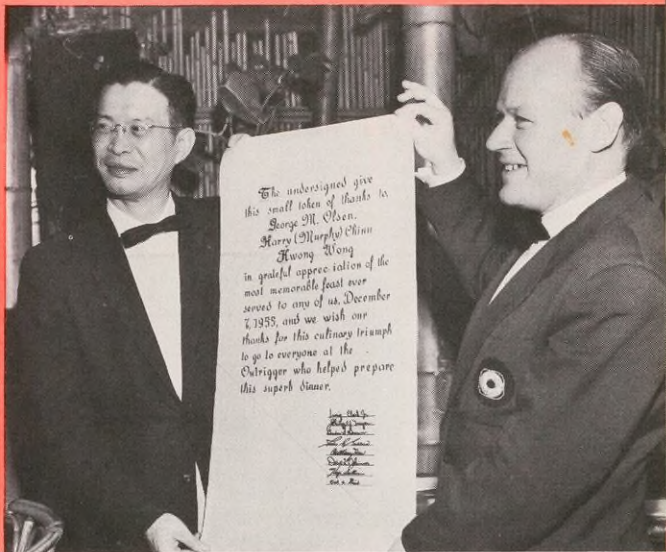 The undersigned give
this small token of thanks to
George M. Olsen,
Harry (Murphy) Chinn
Kwong Wong
in grateful appreciation of the
most memorable feast ever
served to any of us, December
7, 1955, and we wish our
thanks for this culinary triumph
to go to everyone at the
Outrigger who helped prepare
this superb dinner.